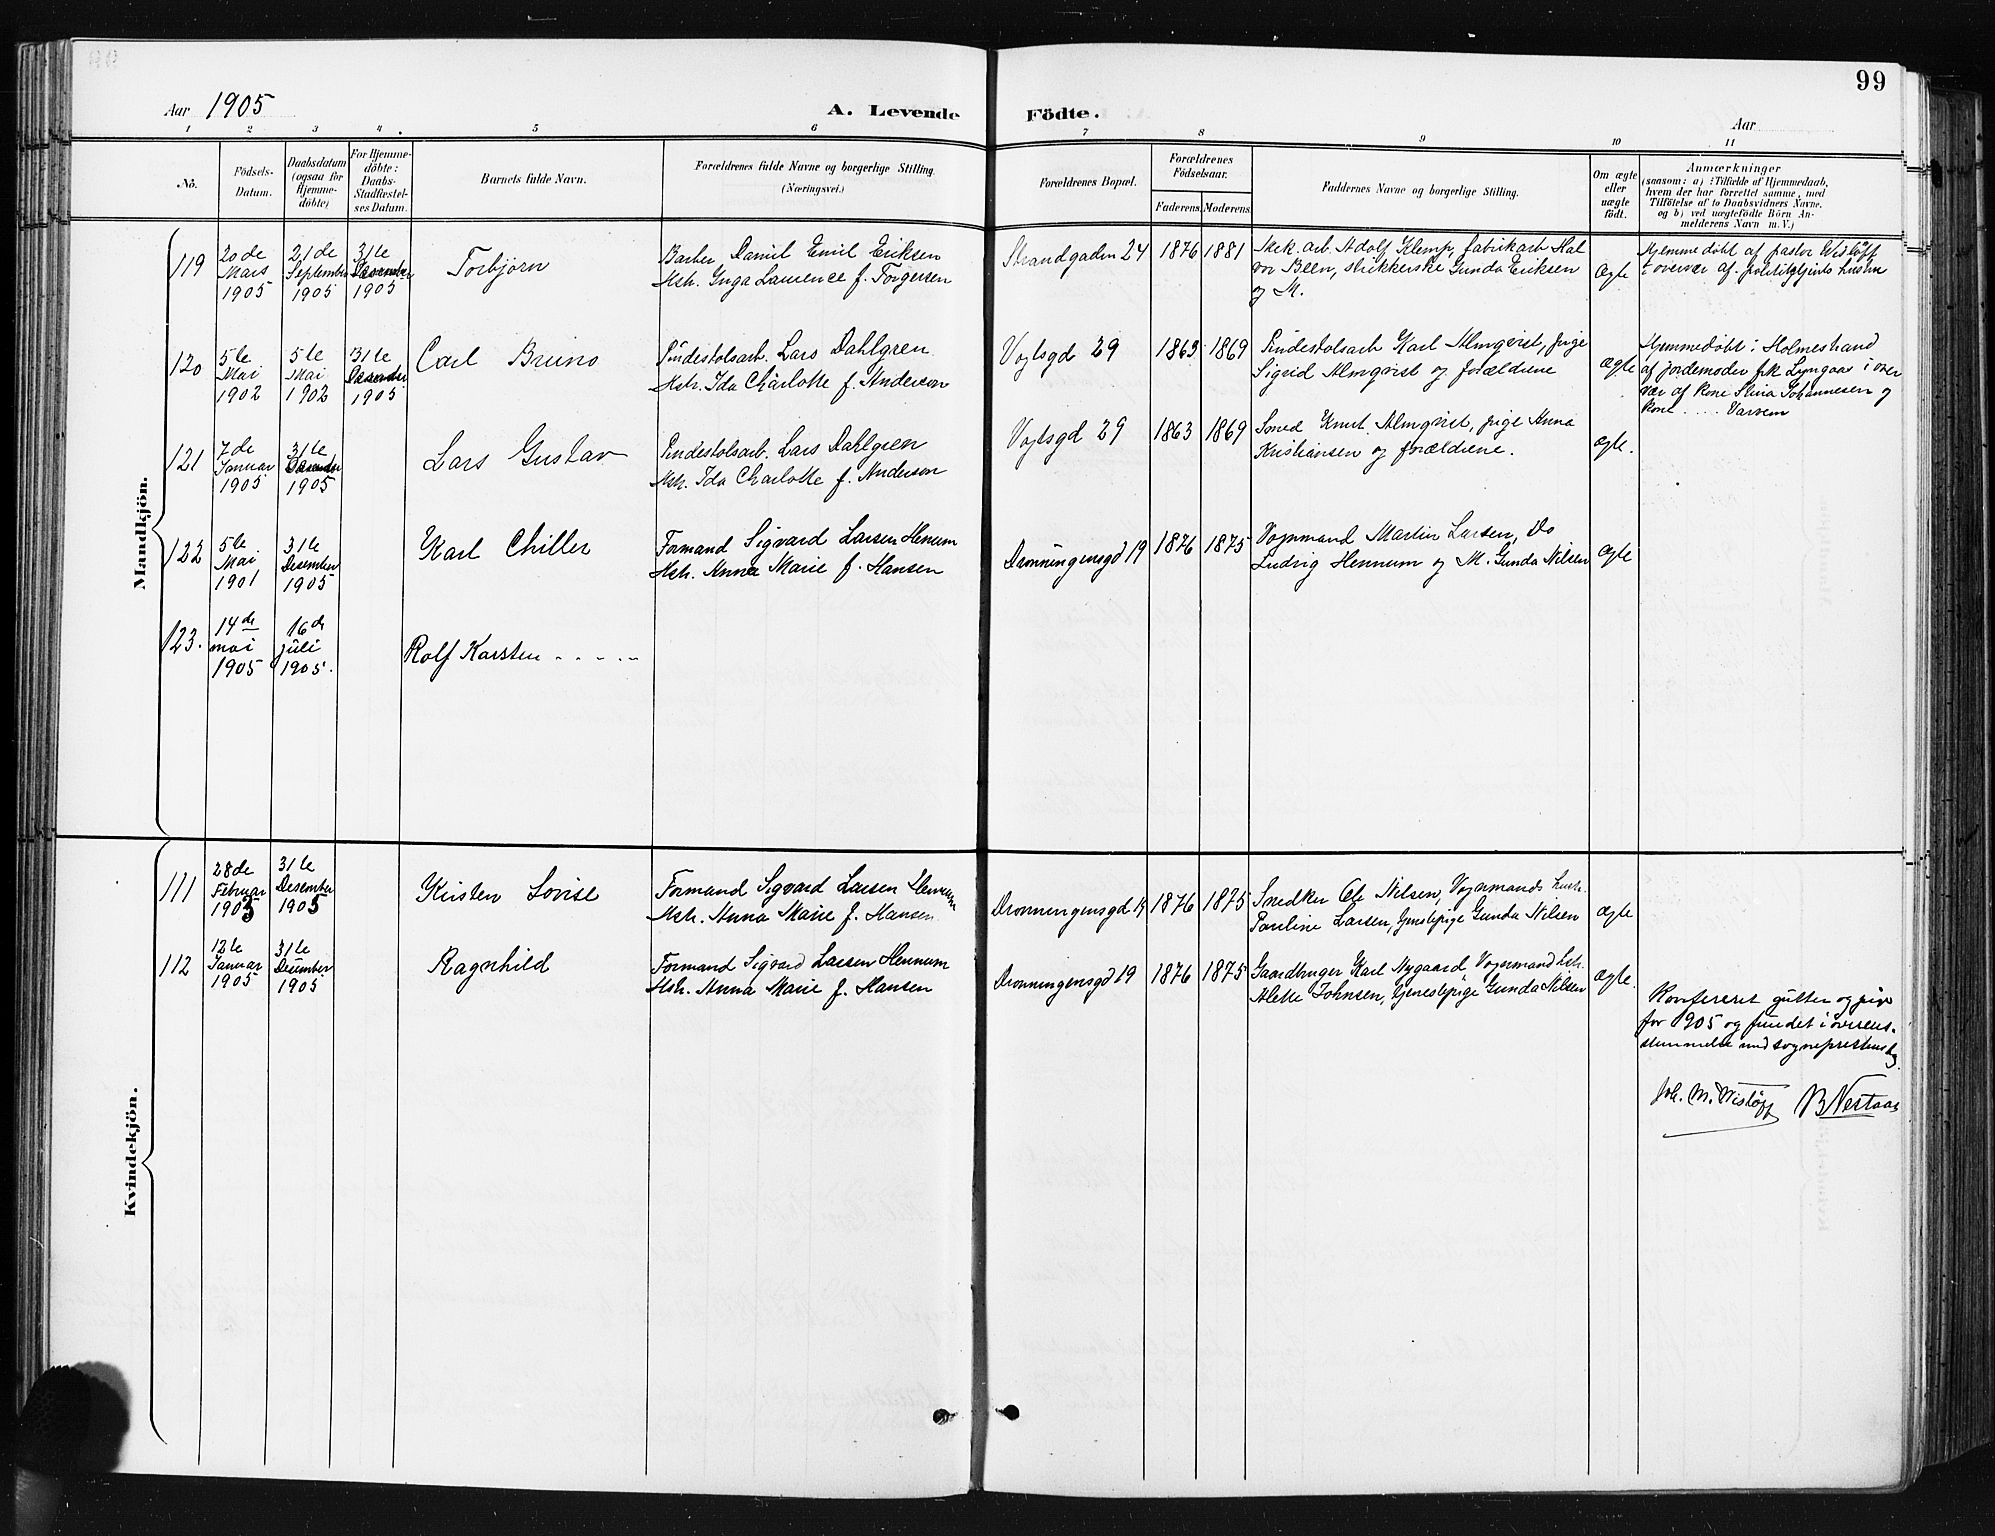 99
Aar 1905
A. Levende Födte.
Aar
1 2 3 4 5 6 7 8 9 10 11
No.
Födsels-
Datum.
Daabsdatum
(ogsaa for
Hjemme-
döbte)
For Hjemme-
döbte:
Daabs-
Stadfæstel-
ses Datum.
Barnets fulde Navn.
Forældrenes fulde Navne og borgerlige Stilling.
(Næringsvei.)
Forældrenes Bopæl.
Forældrenes
Födselsaar.
Faderens. Moderens.
Faddernes Navne og borgerlige Stilling.
Om ægte
eller
uægte
födt.
Anmærkninger
(saasom: a) i Tilfælde af Hjemmedaab,
hvem der har forrettet samme, med
Tilföielse af to Daabsvidners Navne,
og b) ved uægtefödte Börn An-
melderens Navn m. V.)
Mandkjön.
119
20de
Mars
1905
21de
September
1905
31te
Desember
1905
Torbjørn
Barber Daniel Emil Eriksen
Hstr. Inga Laurence f. Torgersen
Strandgaden 24
1876 1881
Mek. arb. Adolf Klemp, fabrikarb. Hal
vor Been, strikkerske Gunda Eriksen
og M.
Ægte
Hjemmedøbt af pastor Wisløff
i overvær af
120
5te
Mai
1902
5te
Mai
1902
31te
Desember
1905
Carl Bruno
Pindestolsarb. Lars Dahlgren
Hstr. Ida Charlotte f. Anderson
Vogtsgd 29
1863 1869
Pindestolsarb Karl Almqvist, pige
Sigrid Almqvist og forældrene
ægte
Hjemmedøbt i Holmestrand
af jordemoder frk Lyngaas i over
vær af kone Stina Johannesen og
kone .... Varvem
121
7de
Januar
1905
31te
Desember
1905
Lars Gustav
Pindestolsarb. Lars Dahlgren
Hstr. Ida Charlotte f. Anderson
Vogtsgd 29
1863 1869
Smed Knut Almqvist, pige Anna
Kristiansen og forældrene.
ægte.
122
5te
Mai
1901
31te
Desember
1905
Karl Chiller
Formand Sigvard Larsen Henum
Hstr. Anna Marie f. Hansen
Dronningensgd 19
1876 1875
Vognmand Martin Larsen, Do
Ludvig Hennum og M. Gunda Nilsen
ægte
123.
14de
mai
1905
16de
juli
1905.
Rolf Karsten - - - - -
Kvindekjön.
111
28de
Februar
1903
31te
Desember
1905
Kirsten Lovise
Formand Sigvard Larsen Hennum
Hstr. Anna Marie f. Hansen
Dronningensgd 19
1876 1875
Snedker Ole Nilsen, Vognmands hustr.
Pauline Larsen, tjenstepige Gunda Nilsen
ægte
112
12te
Januar
1905
31te
Desember
1905
Ragnhild
Formand Sigvard Larsen Hennum
Hstr. Anna Marie f. Hansen
Dronningensgd 19
1876 1875
Gaardbruger Karl Nygaard, Vognmand hstr.
Alette Johnsen, tjenestepige Gunda Nilsen
ægte.
Konfereret gutter og piger
for 1905 og fundet i overens-
stemmelse med sogneprestens bog
Joh. M. Wisløff B Nestaas